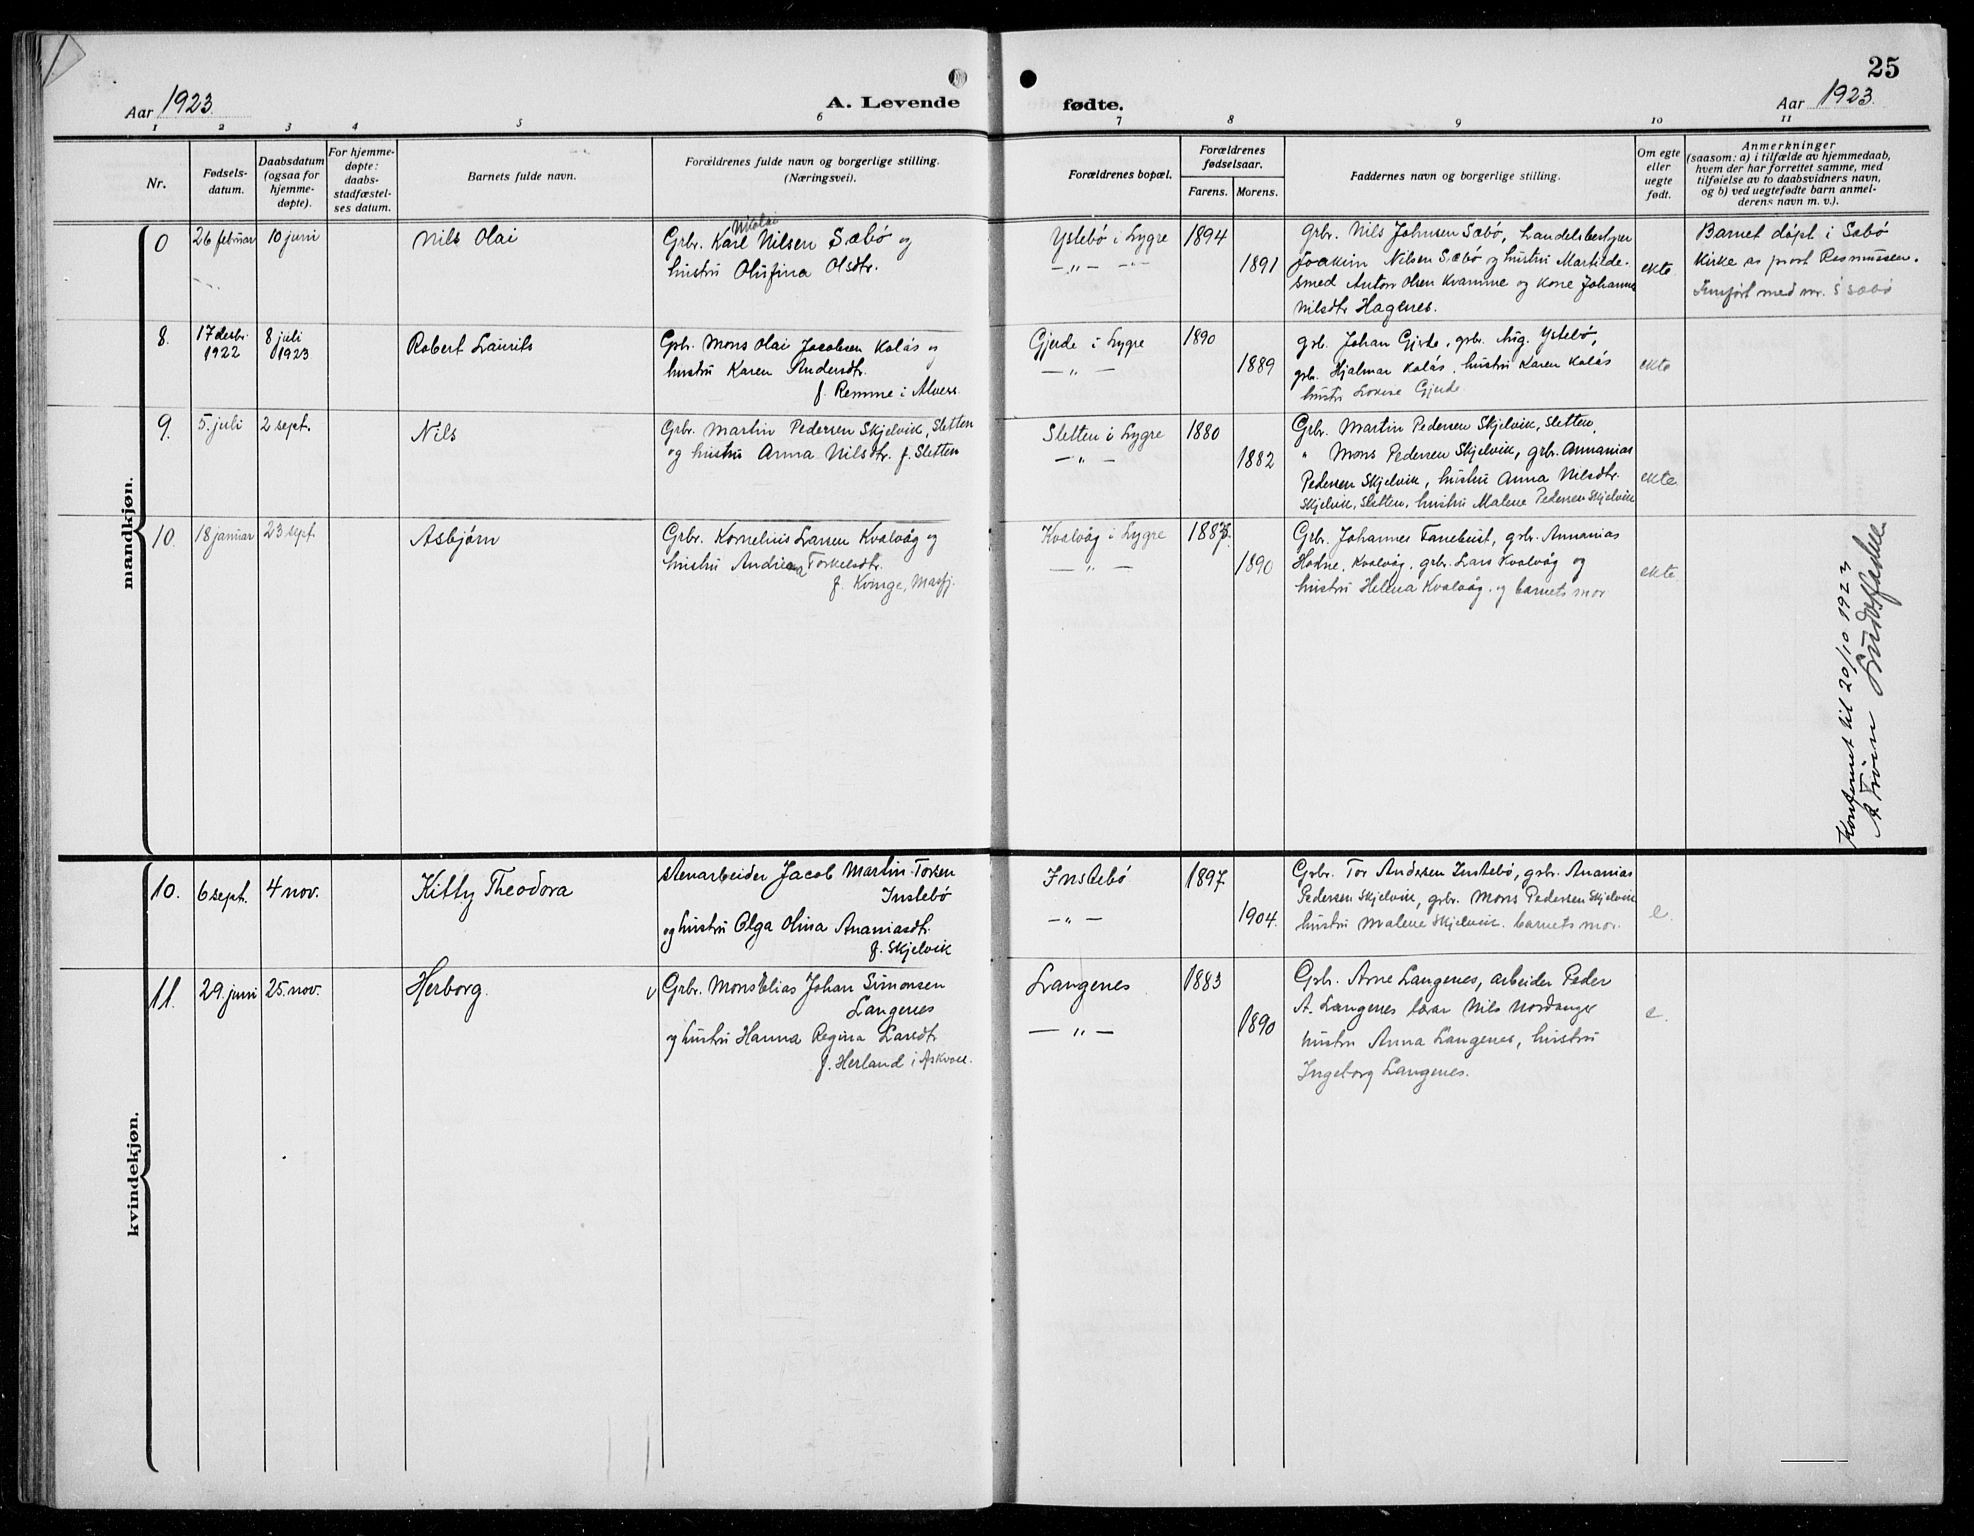 25
Aar 1923.
A. Levende
fødte.
Aar 1923.
1 2 3 4 5 6 7 8 9 10 11
Nr.
Fødsels-
datum.
Daabsdatum
(ogsaa for
hjemme-
døpte).
For hjemme-
døpte:
daabs-
stadfæstel-
ses datum.
Barnets fulde navn.
Forældrenes fulde navn og borgerlige stilling.
(Næringsvei).
Forældrenes bopæl.
Forældrenes
fødselsaar.
Farens. Morens.
Faddernes navn og borgerlige stilling.
Om egte
eller
uegte
født.
Anmerkninger
(saasom: a) i tilfælde av hjemmedaab,
hvem der har forrettet samme, med
tilføielse av to daabsvidners navn,
og b) ved uegtefødte barn anmel-
derens navn m. v.).
mandkjøn.
0
26 februar
10 juni
Nils Olai
Nicolai
Grbr. Karl Nilsen Sæbø og
hustru Olufina Olsdtr.
Ystebø i Lygre
— " — — " —
1894
1891
Grbr. Nils Johnsen Sæbø, Handelsbestyrer
Joakim Nilsen Sæbø og hustru Martilde.
Smed Anton Olsen Kvamme og kone Johanne
Nilsdtr Hagenes.
ekte
Barnet døpt i Sæbø
Kirke av prost Rasmussen.
Innført med nr. i Sæbø
8.
17 desbr.
1922
8 juli
1923
Robert Laurits
Grbr. Mons Olai Jacobsen Kolås og
hustru Karen Andersdtr.
f. Remme i Alvers.
Gjerde i Lygre
— " —
1890
1889
grb. Johan Gjerde, grbr. Aug. Ystebø,
grb. Hjalmar Kolås, hustru Karen Kolås
hustru Lovise Gjerde.
ekte
9.
5. juli
2 sept.
Nils
Grbr. Martin Pedersen Skjelvik, Sletten
og hustru Anna Nilsdtr. f. Sletten
Sletten i Lygre
— " —
1880
1882
Grbr. Martin Pedersen Skjelvik, Sletten,
" Mons Pedersen Skjelvik, grbr. Annanias
Pedersen Skjelvik, hustru Anna Nilsdtr.
Skjelvik, Sletten, hustru Malene Pedersen Skjelvik
ekte
10.
18 januar
23 sept.
Asbjørn
Grbr. Kornelius Larsen Kvalvåg og
hustru Andrea Torkelsdtr.
f. Kvinge, Masfj.
Kvalvåg i Lygre
— " —
1890
Grbr. Johannes Fanebust, grbr. Annanias
Hodne, Kvalvåg, grbr. Lars Kvalvåg og
hustru Helena Kvalvåg. og barnets mor
ekte
Konferert til 20/10 1923
kvindekjøn.
10.
6 sept.
4 nov.
Kitty Theodora
Stenarbeider Jacob Martin Torsen
Instebø
og hustru Olga Olina Ananiasdtr.
f. Skjelvik
Instebø
— " —
1897
1904.
Grbr. Tor Andersen Instebø, grbr. Ananias
Pedersen Skjelvik, grbr. Mons Pedersen Skjelvik
hustru Malene Skjelvik. barnets mor.
e.
11.
29. juni
25. nov.
Herborg.
Grbr. Mons Elias Johan Simonsen
Langenes
og hustru Hanna Regina Larsdtr
f. Herland i Askvoll.
Langenes
— " —
1883
1890
Grbr. Arne Langenes, arbeider Peder
A. Langenes lærar Nils Nordanger
hustru Anna Langenes, hustru
Ingeborg Langenes.
e.